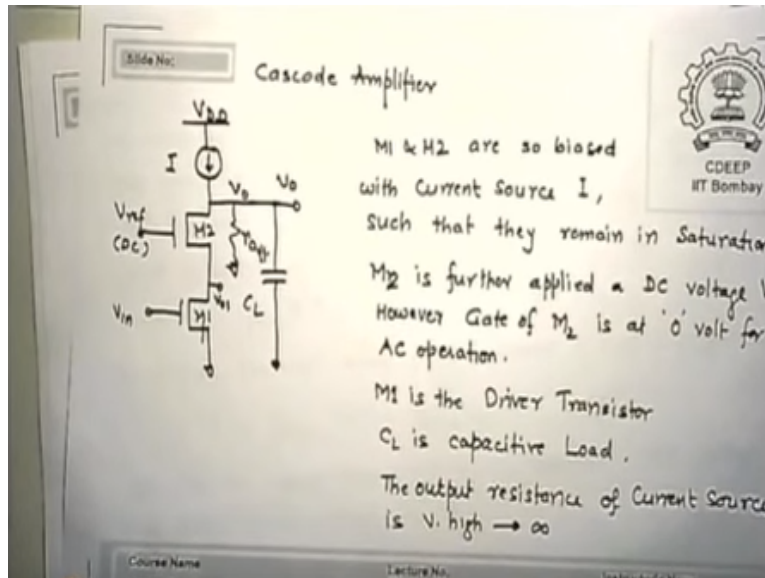 Slide No:
Cascode Amplifier
CDEEP
IIT Bombay
VDD
I
Vo
Vo
Vref
(DC)
M2
roeff
Vo1
CL
Vin
M1
M1 & M2 are so biased
with Current Source I,
such that they remain in Saturatio
M2 is further applied a DC voltage V
However Gate of M2 is at 'O' volt for
AC operation.
M1 is the Driver Transistor
CL is capacitive Load.
The output resistance of Current Source
is V. high → ∞
Course Name
Lecture No.